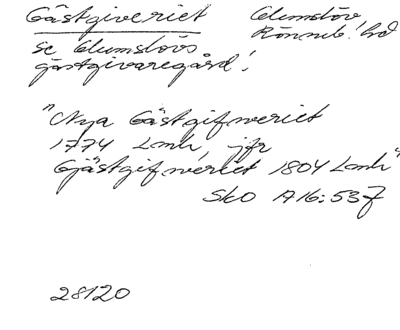 Gästgiveriet
Glumslöv
Rönneb. hd
se Glumslövs
gästgivaregård!
"Nya Gästgifweriet
1774 Lmh, jfr
Gjästgifweriet 1804 Lmh"
Sko A16:537
28120